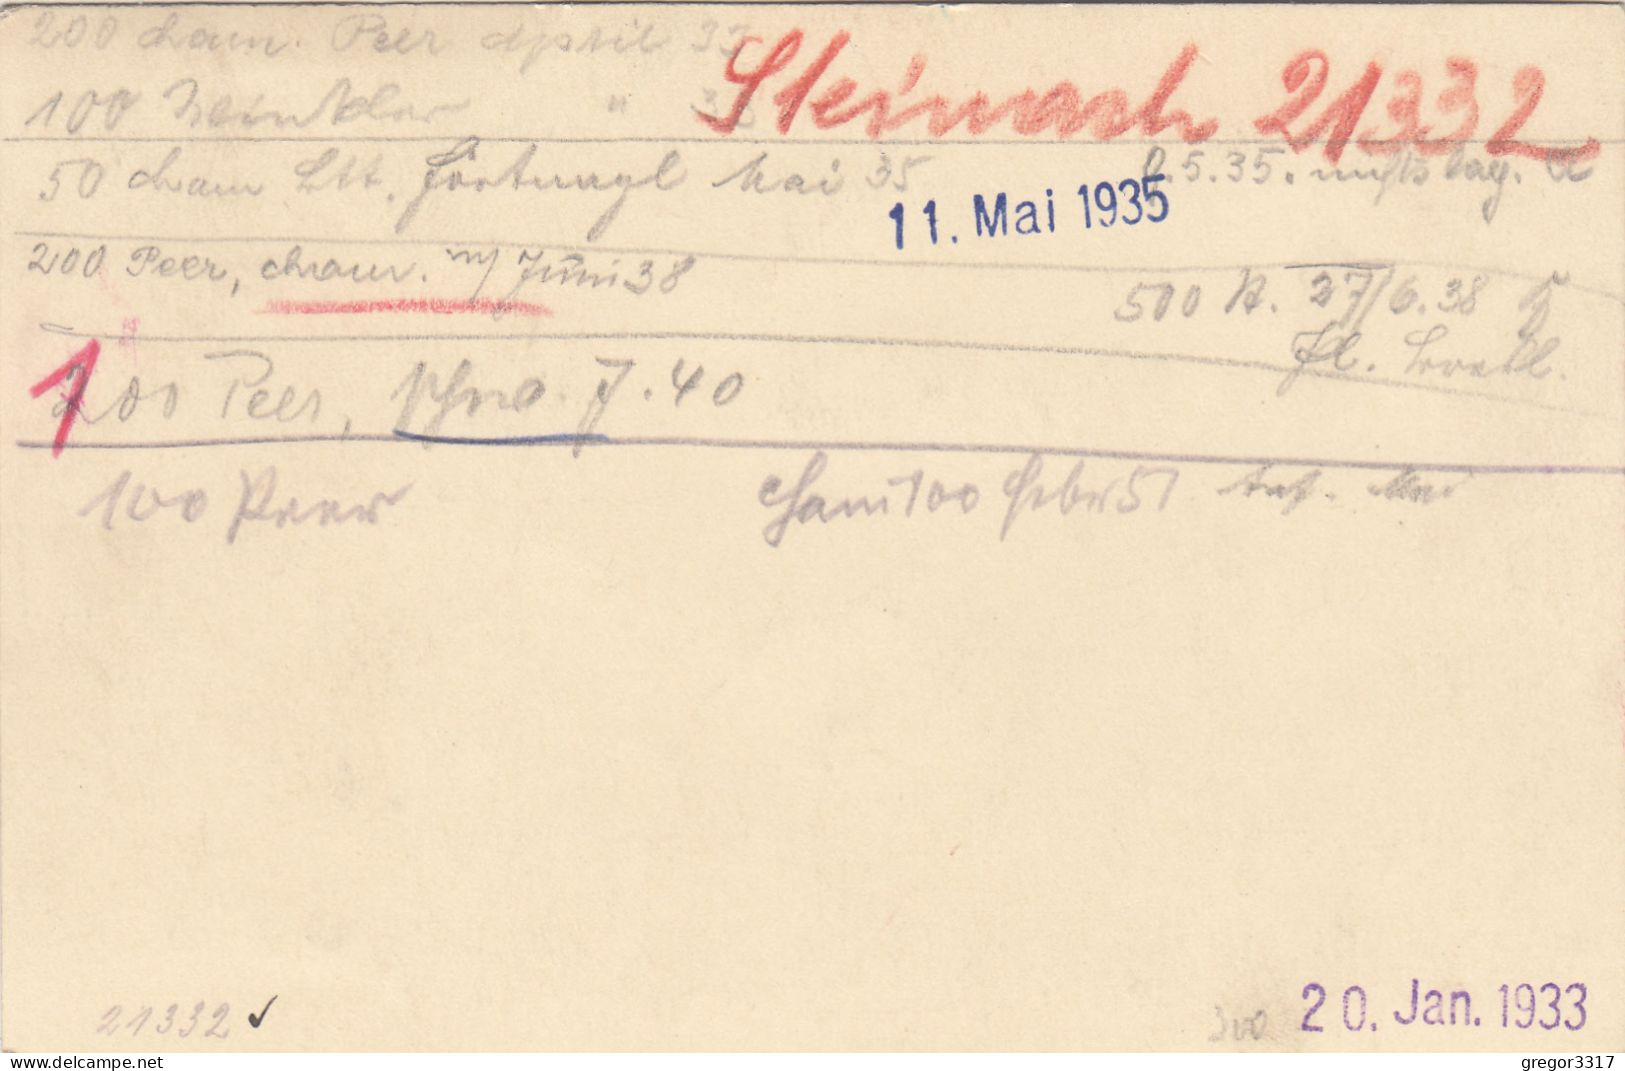 200 cham. Peer April 33
Steinach 21332
100 Winkler " 33
50 cham Ltt. Mai 35
8.5.35. nichts lag.
11. Mai 1935
200 Peer, cham. m/ Juni 38
500 N. 27/6.38
1
200 Peer, 7.40
100 Peer
cham 100 Feber 51
21332 ✓
300
20. Jan. 1933
www.delcampe.net
gregor3317